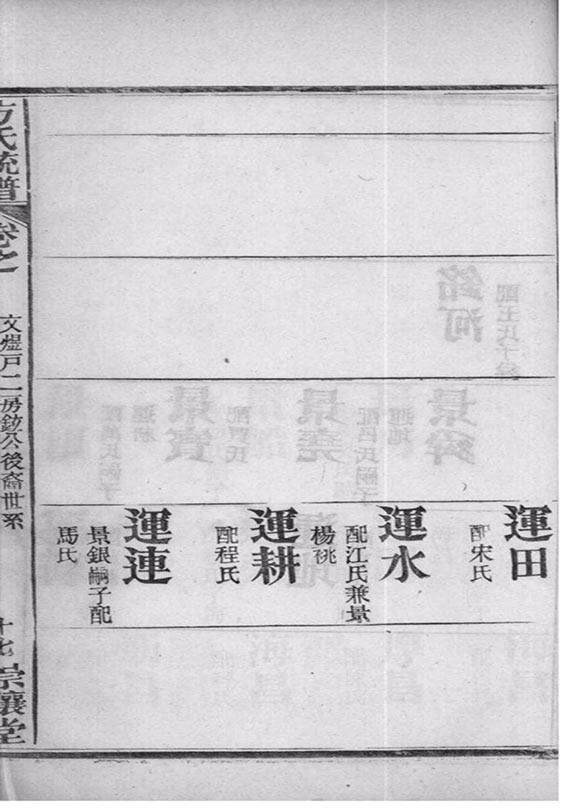 運田
配宋氏
運水
配江氏兼景
楊祧
運耕
配程氏
運連
景銀嗣子配
馬氏
方氏統譜
卷之
文煜戶二房鉉公後裔世系
十七